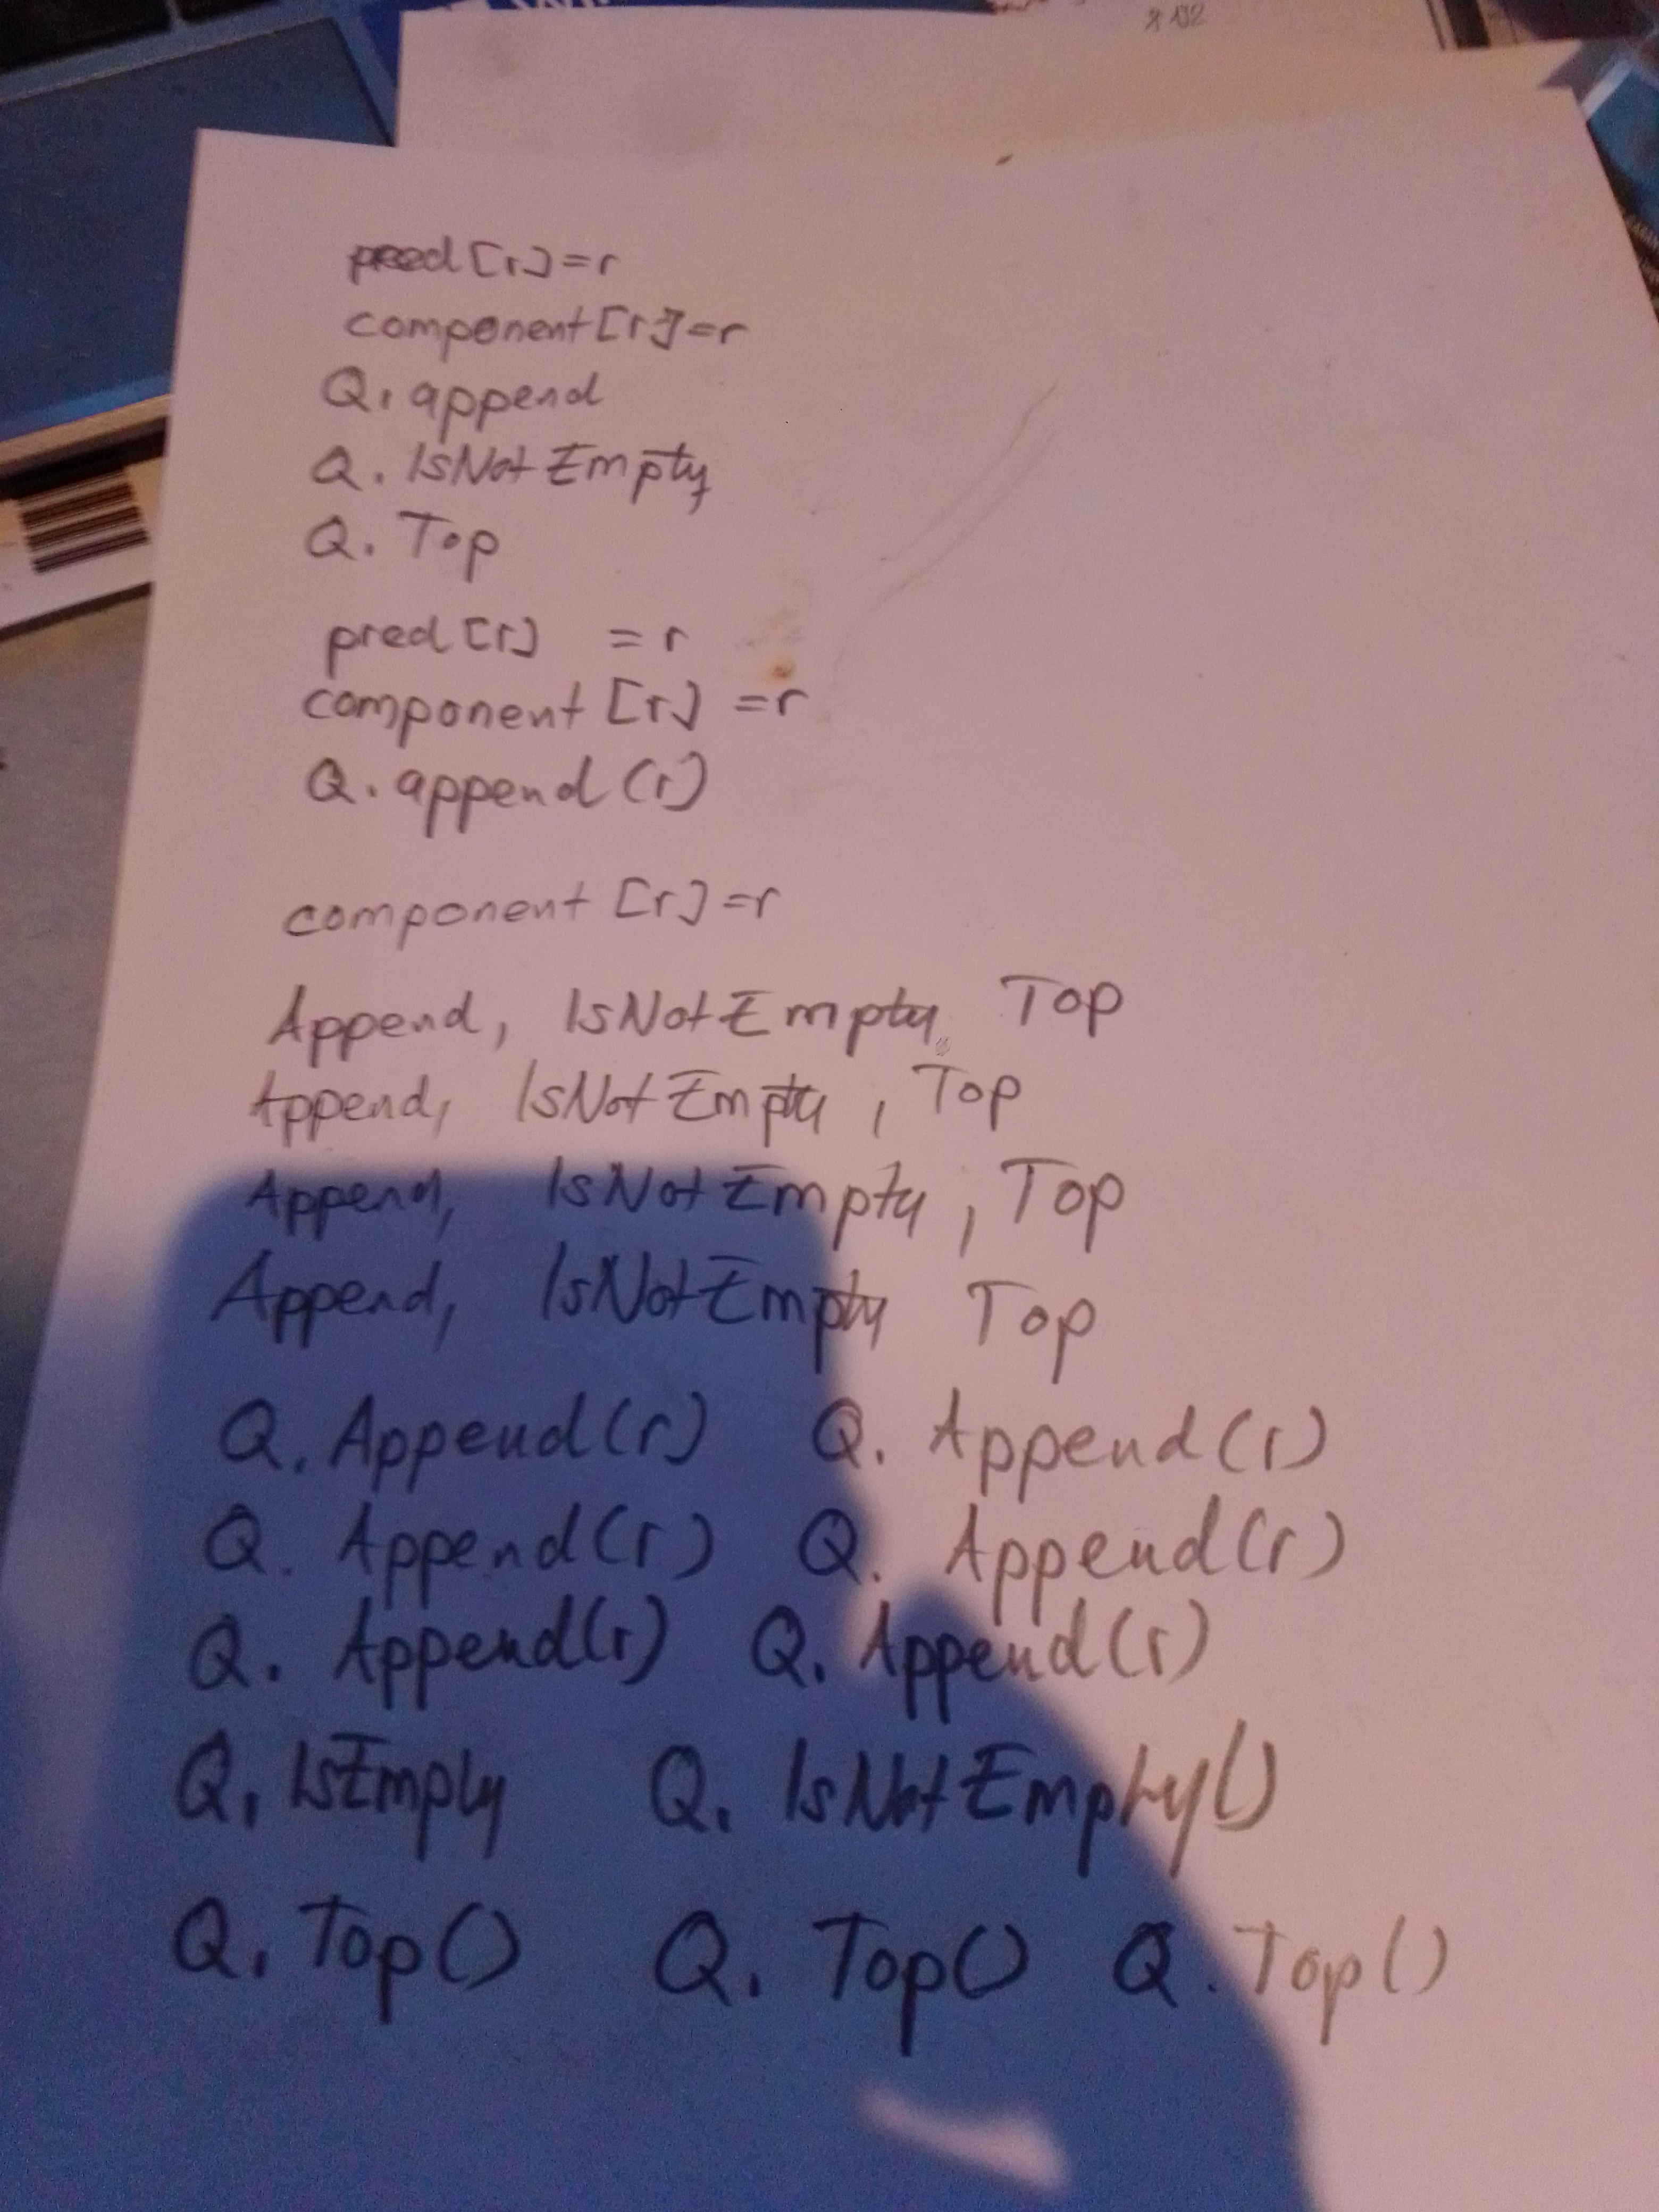 pred[r]=r
component[r]=r
Q.append
Q. IsNotEmpty
Q. Top
pred[r] =r
component [r] =r
Q. append(r)
component [r]=r
Append, IsNotEmpty, Top
Append, IsNotEmpty, Top
Append, IsNotEmpty, Top
Append, IsNotEmpty Top
Q. Append(r) Q. Append(r)
Q. Append(r) Q. Append(r)
Q. Append(r) Q. Append(r)
Q. IsEmpty Q. IsNotEmpty()
Q. Top() Q. Top() Q. Top()